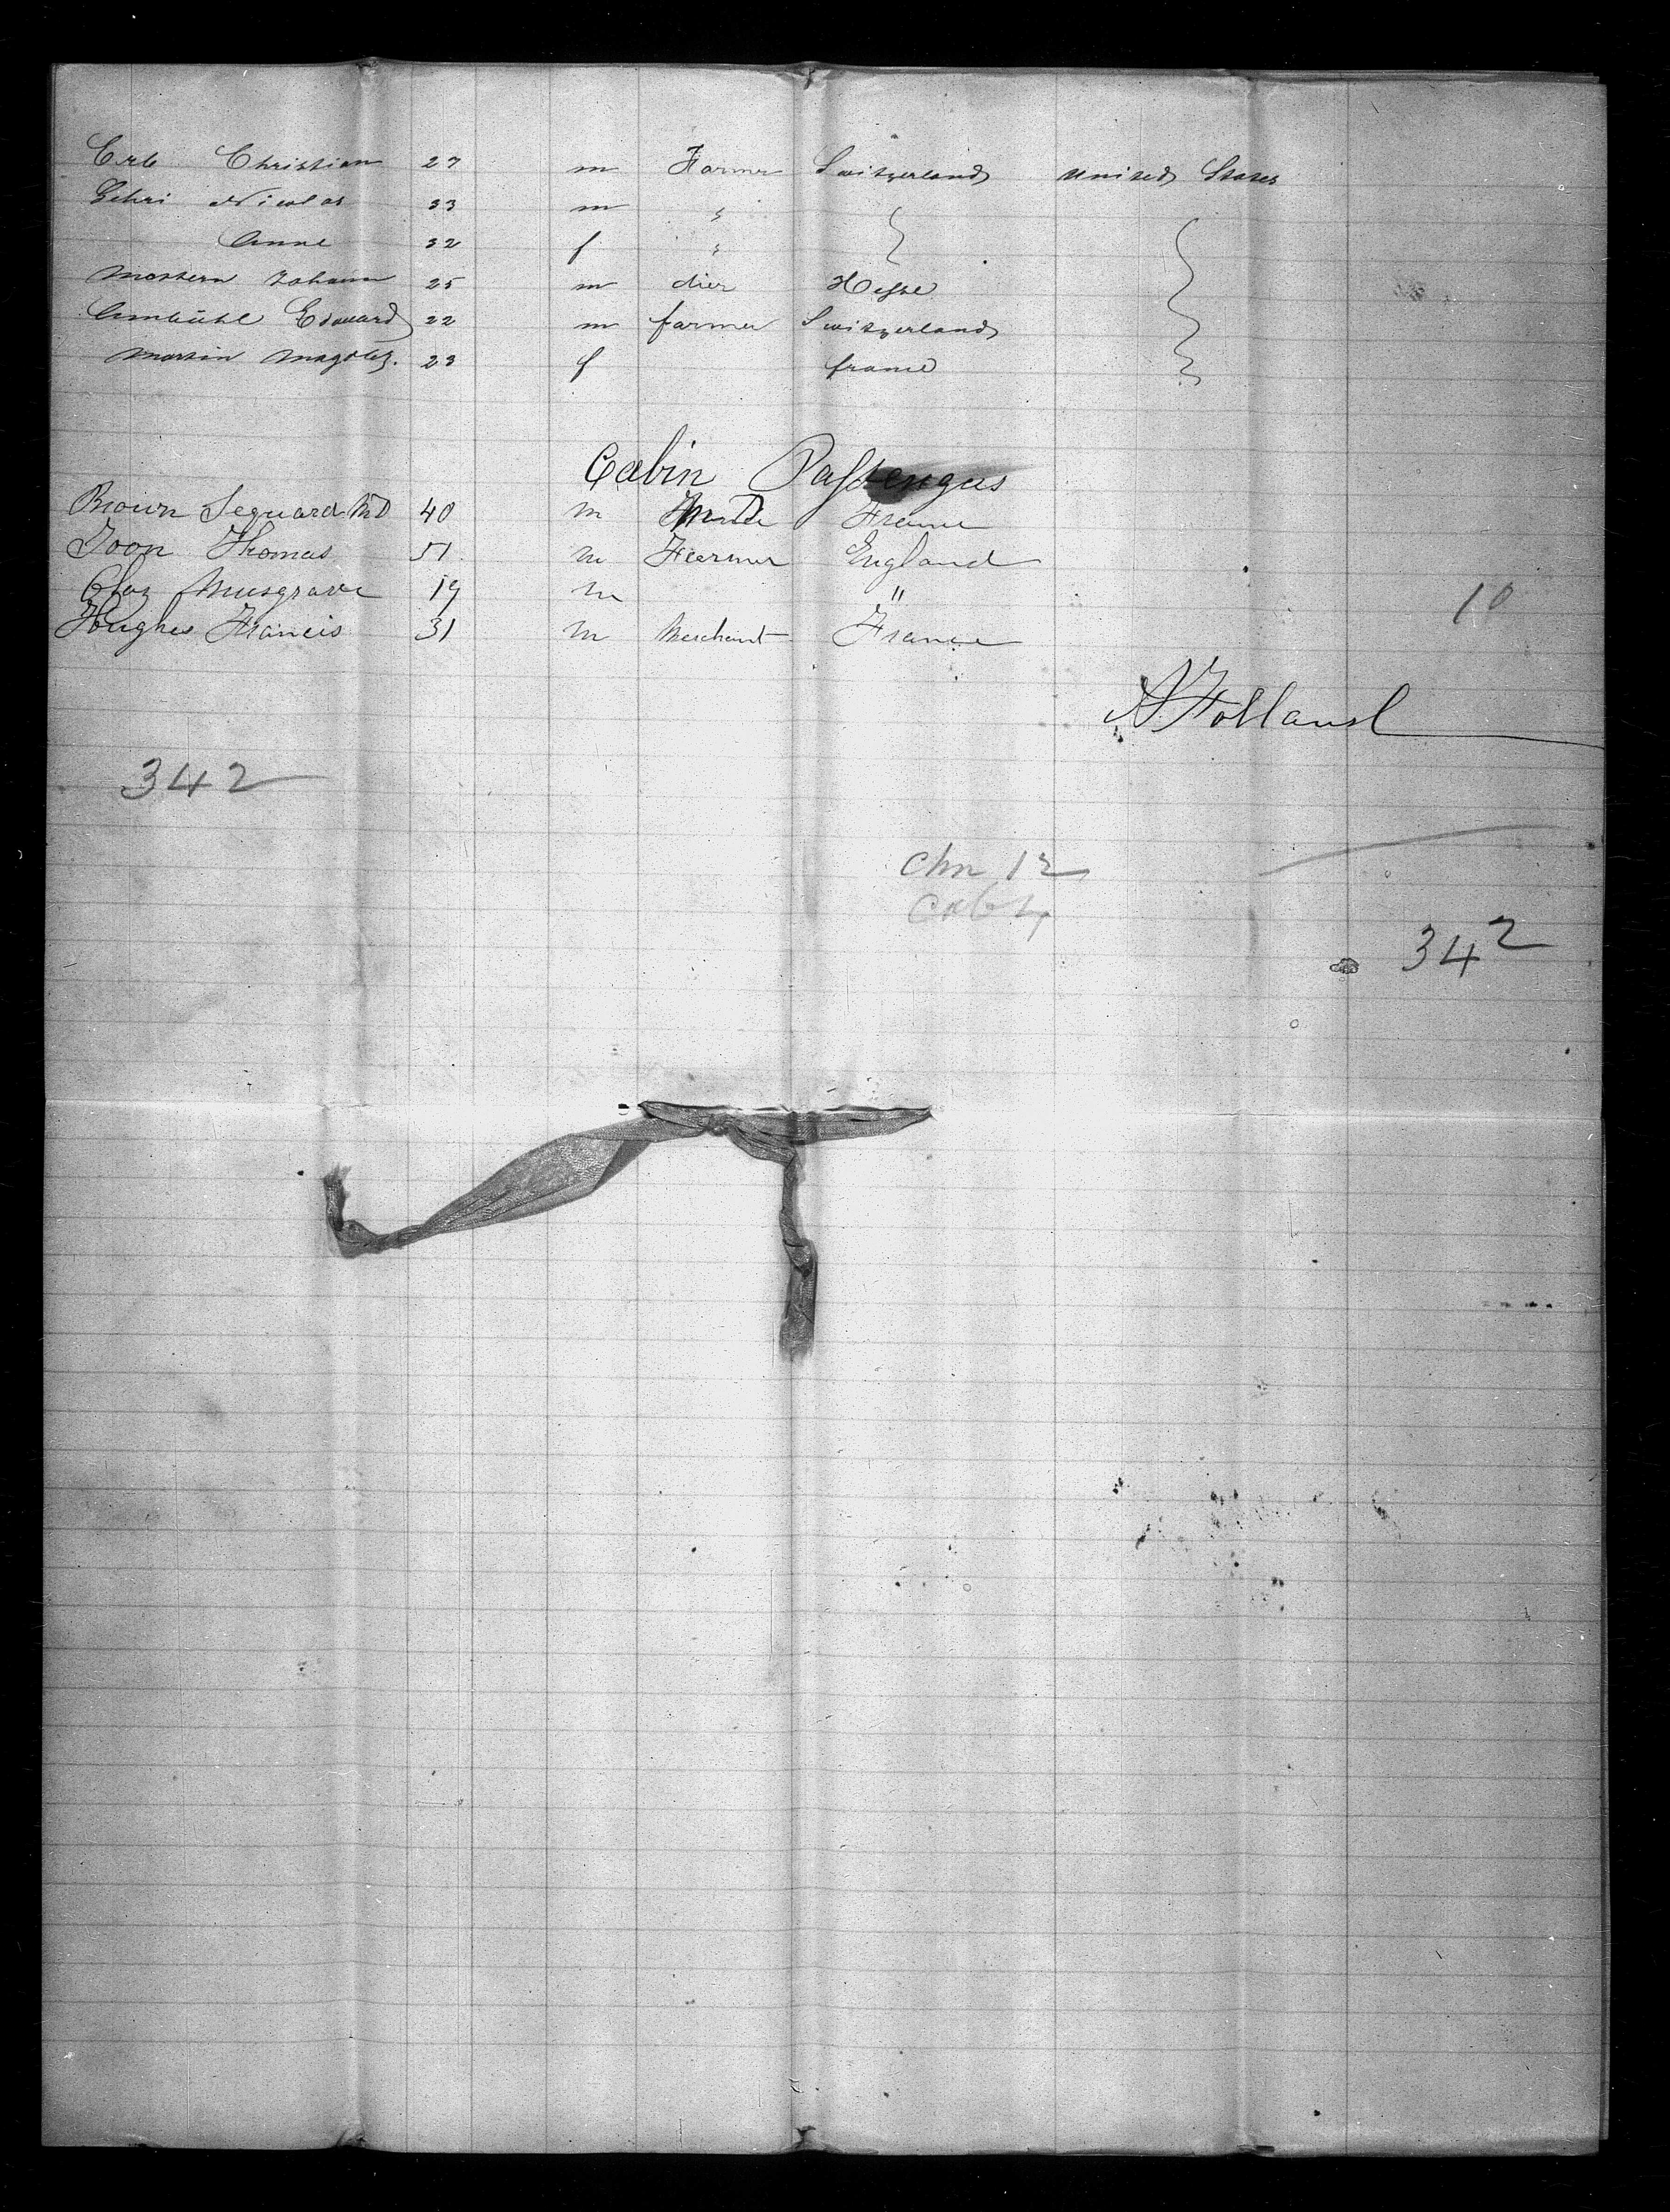 Erb Christian 27 m Farmer Switzerland United States
Gehri Nicolas 33 m "
Anne 32 f "
Mostern Johann 25 m dier Hesse
Ambühl Edouard 22 m farmer Switzerland
Martin 23 f france
Cabin Passengers
Brown Sequard MD 40 m MD France
Toon Thomas 51 m Farmer England
Musgrave 19 m "
Hughes Francis 31 m Merchant France
10
A. Holland
342
Chn 12
Cab 4
342